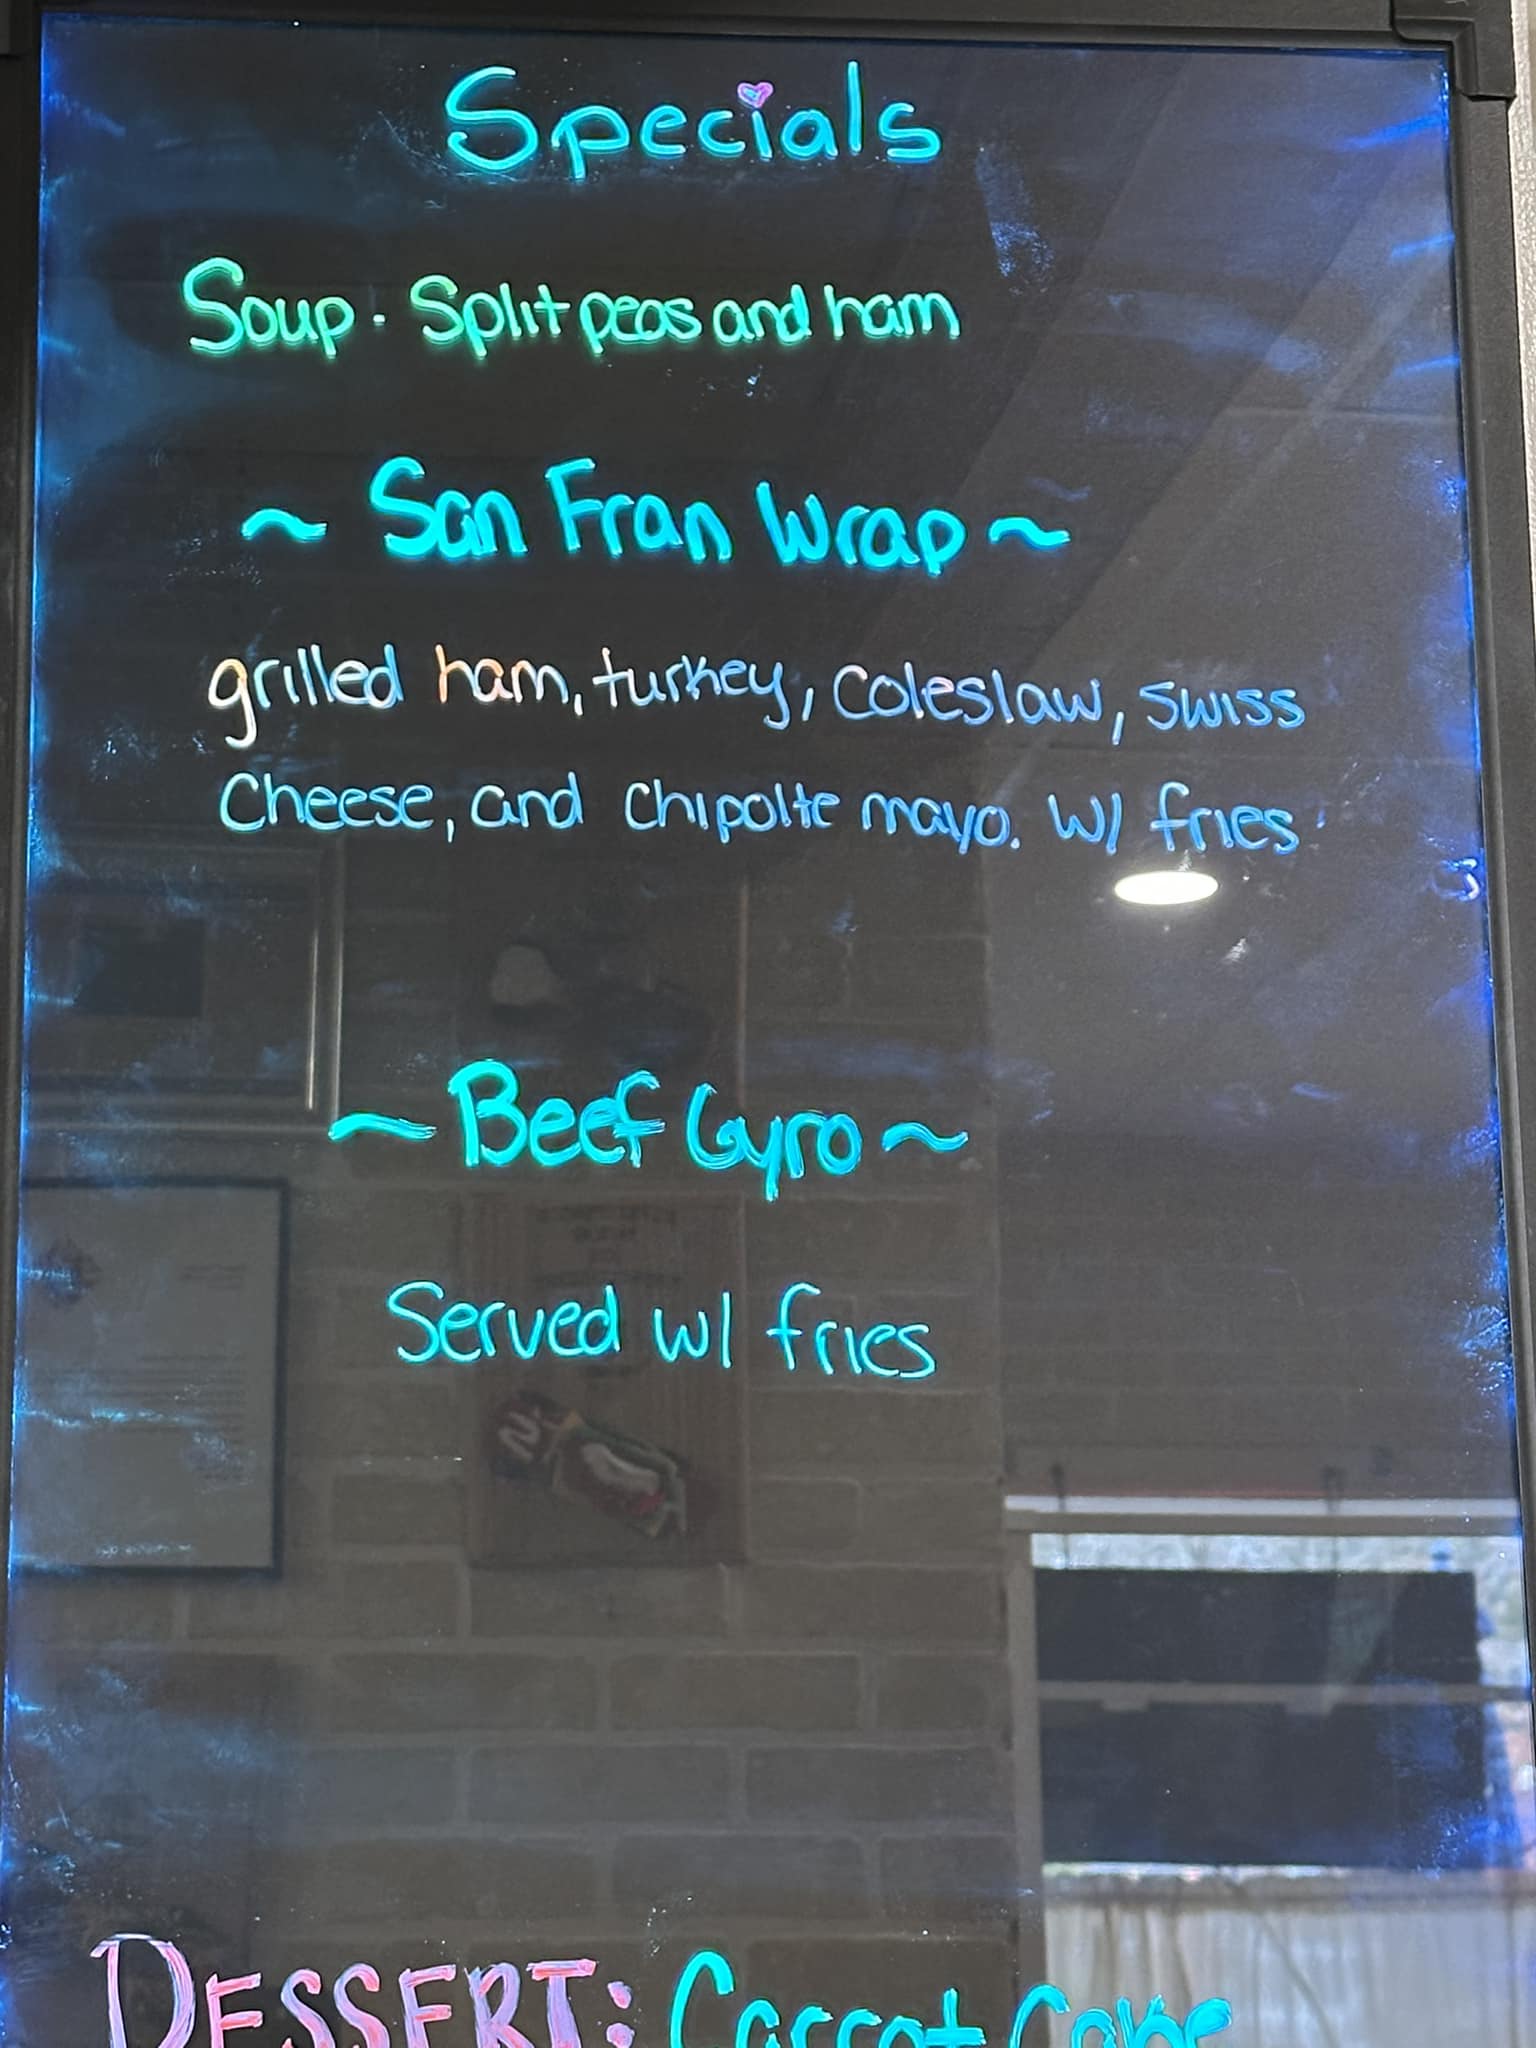 Specials
Soup. Split peas and ham
~ San Fran Wrap ~
grilled ham, turkey, coleslaw, swiss
Cheese, and chipolte mayo. w/ fries
~ Beef Gyro ~
Served w/ fries
DESSERT: Carrot Cake